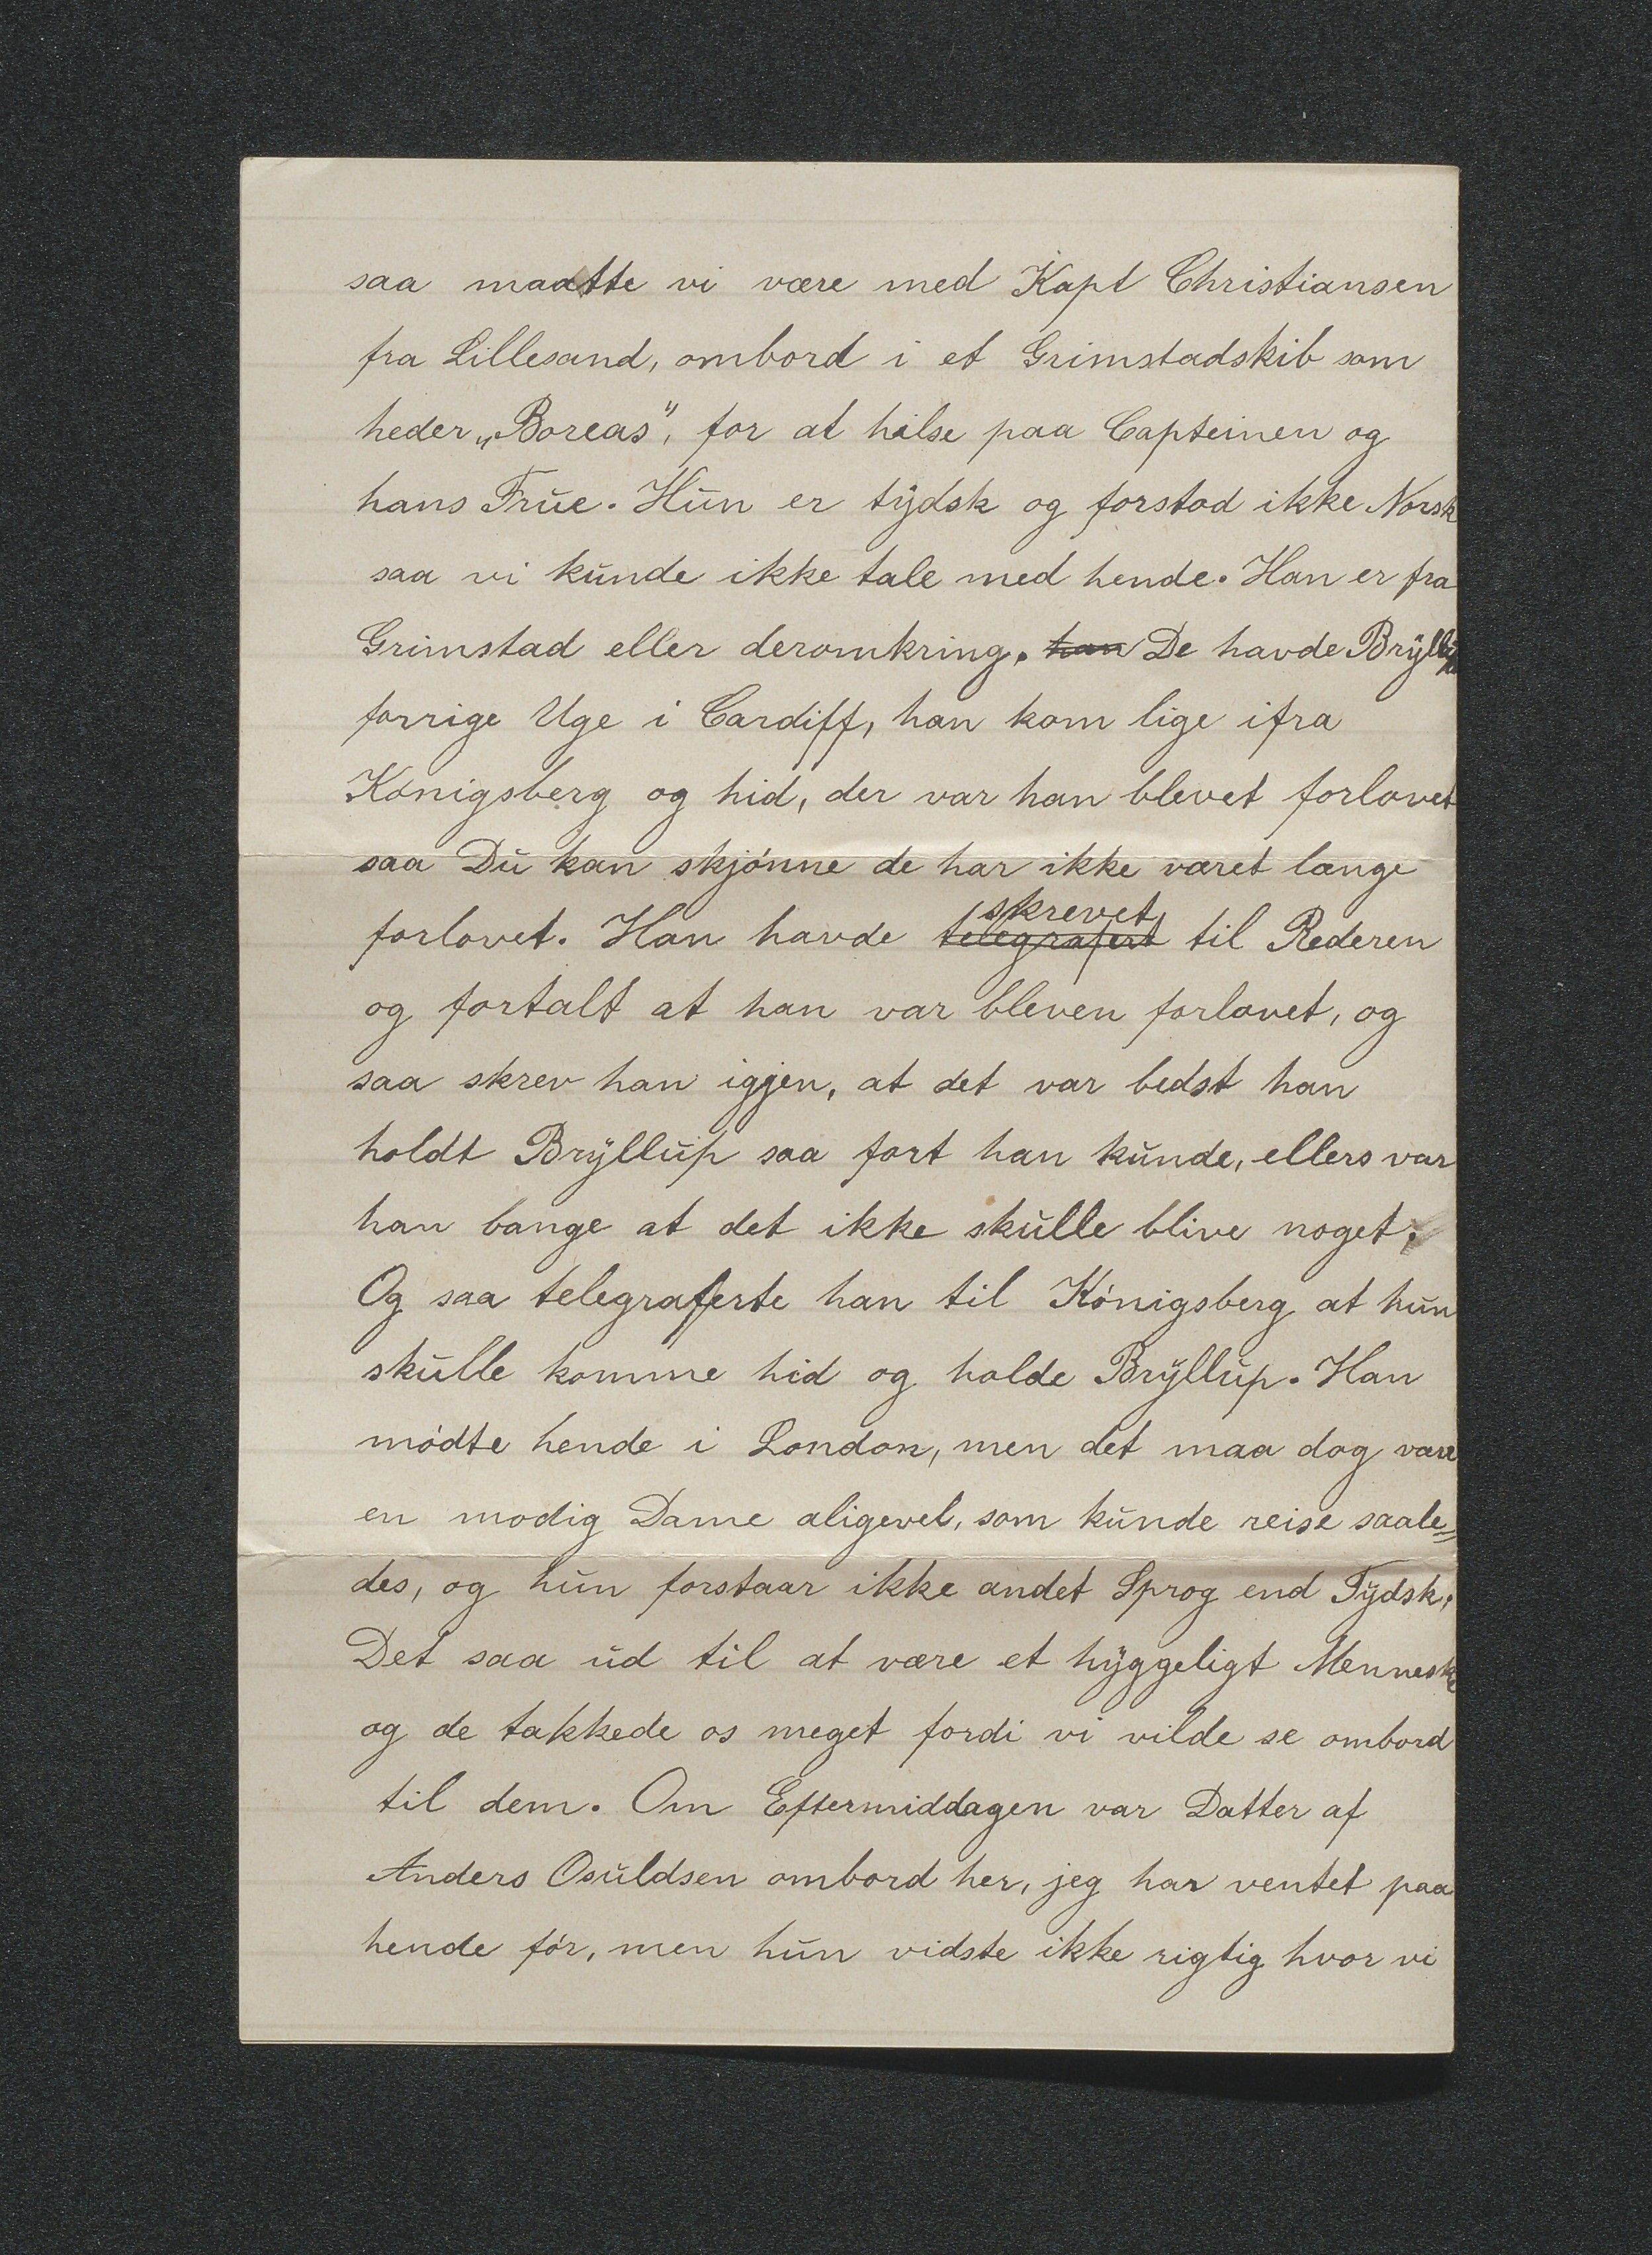 saa maatte vi være med Kapt Christiansen
fra Lillesand, ombord i et Grimstadskib som
heder „Boreas", for at hilse paa Capteinen og
hans Frue. Hun er tydsk og forstod ikke Norsk
saa vi kunde ikke tale med hende. Han er fra
Grimstad eller deromkring. han De havde Bryllup
forrige Uge i Cardiff, han kom lige ifra
Königsberg og hid, der var han blevet forlovet
saa Du kan skjønne de har ikke været længe
skrevet
forlovet. Han havde telegrafert til Rederen
og fortalt at han var bleven forlovet, og
saa skrev han igjen, at det var bedst han
holdt Bryllup saa fort han kunde, ellers var
han bange at det ikke skulle blive noget.
Og saa telegraferte han til Königsberg at hun
skulle komme hid og holde Bryllup. Han
mødte hende i London, men det maa dog være
en modig Dame aligevel, som kunde reise saale=
des, og hun forstaar ikke andet Sprog end Tydsk.
Det saa ud til at være et hyggeligt Menneske
og de takkede os meget fordi vi vilde se ombord
til dem. Om Eftermiddagen var Datter af
Anders Osuldsen ombord her, jeg har ventet paa
hende før, men hun vidste ikke rigtig hvor vi